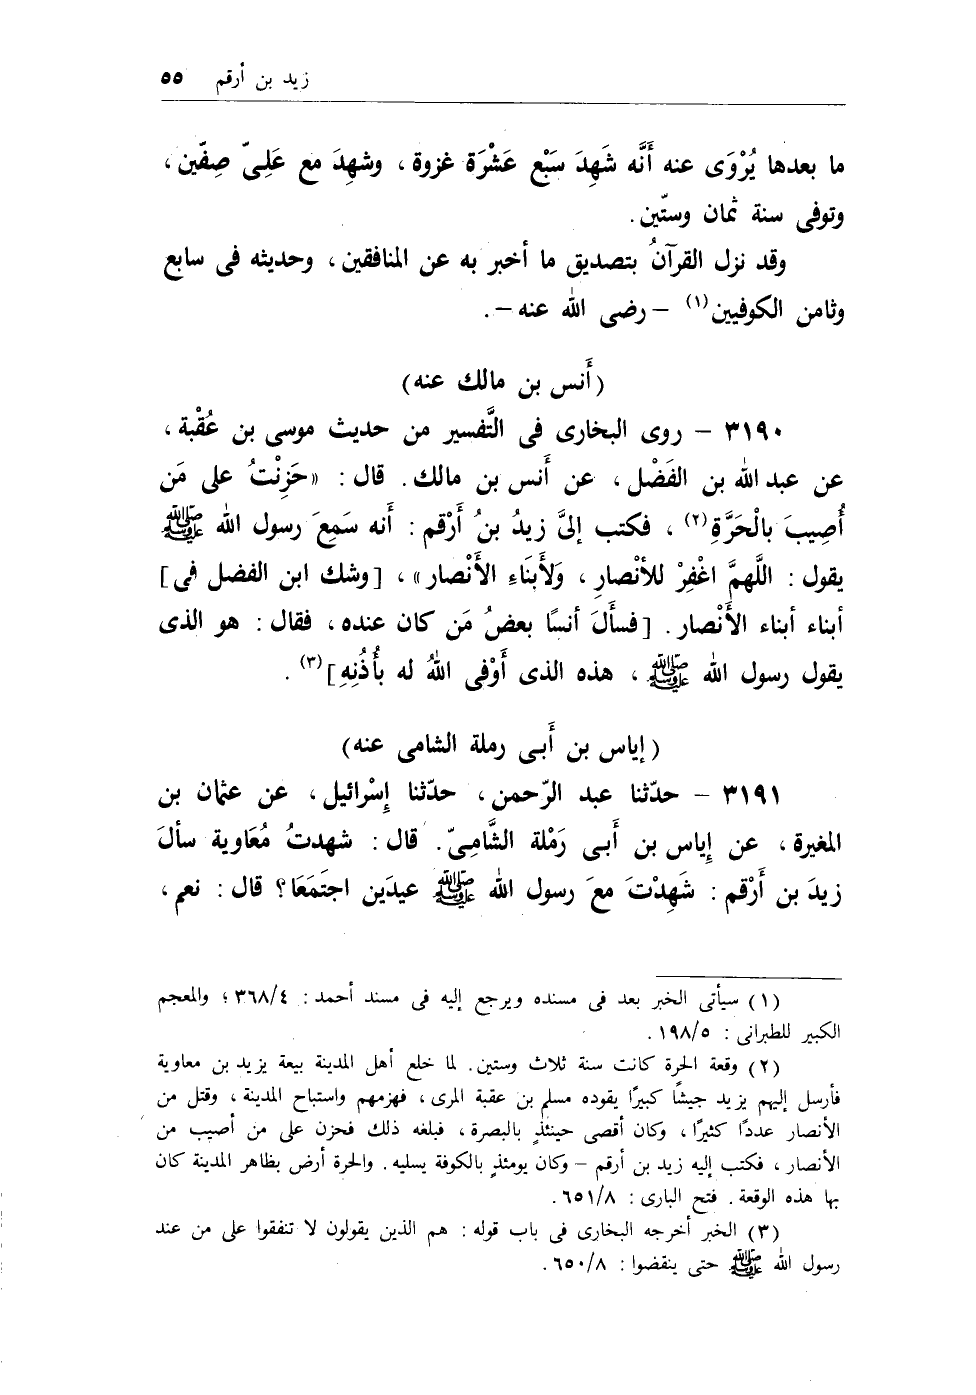 زيد بن أرقم ٥٥
ما بعدها يُرْوَى عنه أَنَّه شَهِدَ سَبْع عَشْرَة غزوة ، وشهِدَ مع عَلِىّ صِفّين ،
وتوفى سنة ثمان وستّين .
وقد نزل القرآنُ بتصديق ما أخبر به عن المنافقين ، وحديثه فى سابع
وثامن الكوفيين(١) – رضى الله عنه – .
(أَنس بن مالك عنه)
٣١٩٠ – روى البخارى فى التَّفسير من حديث موسى بن عُقْبة ،
عن عبد الله بن الفَضْل ، عن أَنس بن مالك . قال : «حَزِنْتُ على مَن
أُصِيبَ بالْحَرَّةِ(٢) ، فكتب إلىَّ زيدُ بنُ أَرْقم : أَنه سَمِعَ رسول الله ﷺ
يقول : اللَّهمَّ اغْفِرْ للأنْصارِ ، وَلأَبناءِ الأَنْصار» ، [وشك ابن الفضل فى]
أبناء أبناء الأَنْصار . [فسأَلَ أنسًا بعضُ مَن كان عنده ، فقال : هو الذى
يقول رسول الله ﷺ ، هذه الذى أَوْفى اللهُ له بأُذُنِهِ](٣) .
(إياس بن أَبى رملة الشامى عنه)
٣١٩١ – حدّثنا عبد الرّحمن ، حدّثنا إسْرائيل ، عن عثمان بن
المغيرة ، عن إياس بن أَبى رَمْلة الشَّامِىّ . قال : شهدتُ مُعَاوية سألَ
زيدَ بن أَرْقم : شَهِدْتَ معَ رسول الله ﷺ عيدَين اجتَمَعَا؟ قال : نعم ،
(١) سيأتى الخبر بعد فى مسنده ويرجع إليه فى مسند أحمد : ٣٦٨/٤ ؛ والمعجم
الكبير للطبرانى : ١٩٨/٥ .
(٢) وقعة الحرة كانت سنة ثلاث وستين . لما خلع أهل المدينة بيعة يزيد بن معاوية
فأرسل إليهم يزيد جيشًا كبيرًا يقوده مسلم بن عقبة المرى ، فهزمهم واستباح المدينة ، وقتل من
الأنصار عددًا كثيرًا ، وكان أقصى حينئذٍ بالبصرة ، فبلغه ذلك فحزن على من أصيب من
الأنصار ، فكتب إليه زيد بن أرقم – وكان يومئذٍ بالكوفة يسليه . والحرة أرض بظاهر المدينة كان
بها هذه الوقعة . فتح البارى : ٦٥١/٨ .
(٣) الخبر أخرجه البخارى فى باب قوله : هم الذين يقولون لا تنفقوا على من عند
رسول الله ﷺ حتى ينقضوا : ٦٥٠/٨ .